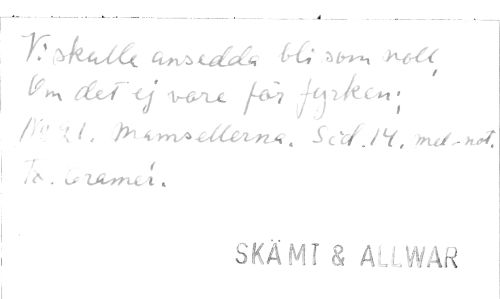 Vi skulle ansedda bli som noll,
Om det ej vore för fyrken;
No 21. Mamsellerna. Sid. 14. mel-not.
Th. Cramér.
SKÄMT & ALLWAR